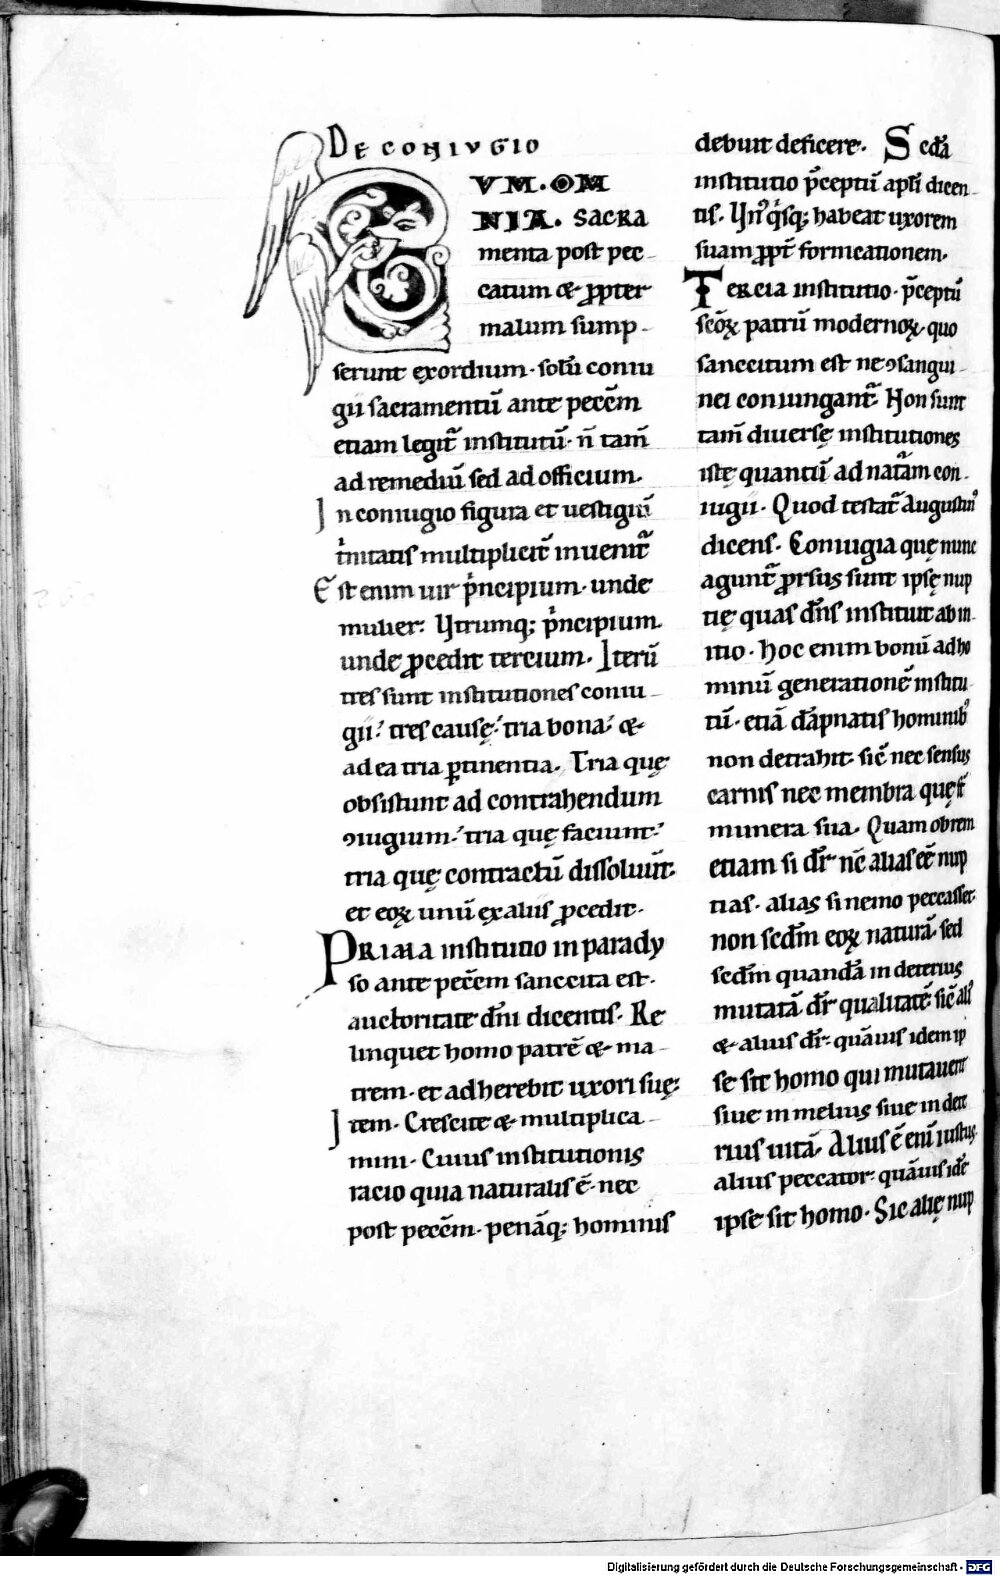 DE CONIVGIO
CVM. OM
NIA. SACRA
menta post pec-
catum & ꝓpter
malum sump-
serunt exordium. solū coniu
gii sacramentū ante pecc̄m
etiam legit᷑ institutū. n̄ tam̄
ad remediū sed ad officium.
In coniugio figura et uestigiū
t̍nitatis multiplicit̄ inuenit᷑
Est enim uir p̍ncipium. unde
mulier: Utrumq; p̍ncipium
unde ꝓcedit tercium. Iterū
tres sunt institutiones coniu-
gii: tres causę: tria bona: &
ad ea tria ꝑtinentia. Tria quę
obsistunt ad contrahendum
ꝯiugium: tria quę faciunt:
tria quę contractū dissoluūt.
et eoꝝ unū ex aliis ꝓcedit.
PRIMA institutio in parady
so ante pecc̄m sanccita est.
auctoritate dn̄i dicentis. Re
linquet homo patrē & ma-
trem. et adherebit uxori suę:
Item. Crescite & multiplica-
mini. Cuius institutionis
racio quia naturalis ē. nec
post pecc̄m. penāq; hominis
debuit deficere. Scd̄a
institutio p̄ceptū apl̄i dicen-
tis. Un᾽q̍sq; habeat uxorem
suam ꝓpt̄ fornicationem.
TERCIA institutio. p̄ceptū
sc̄oꝝ patrū modernoꝝ. quo
sanccitum est ne ꝯsangui-
nei coniungant᷑. Non sunt
tam̄ diuersę institutiones
istę quantū ad nat᷑am con-
iugii. Quod testat᷑ Augustin᾽
dicens. Coniugia quę nunc
agunt᷑ ꝓrsus sunt ipsę nup
tię quas dn̄s instituit ab in-
itio. Hoc enim bonū ad ho
minū generationē institu
tū. etiā dāpnatis hominib᾽
non detrahit. sic̄ nec sensus
carnis nec membra quę s̄t
munera sua. Quam obrem
etiam si dr̄ nc̄ alias ee̅ nup
tias. alias si nemo peccasset.
non scd̄m eoꝝ naturā. sed
scd̄m quandā in deterius
mutatā dr̄ qualitatē. sic̄ ali᾽
& alius dr̄: quāuis idem ip
se sit homo qui mutauerit
siue in melius siue in dete
rius uitā. Alius ē enī iustus.
alius peccator: quāuis idē
ipse sit homo. Sic alię nup
Digitalisierung gefördert durch die Deutsche Forschungsgemeinschaft - DFG